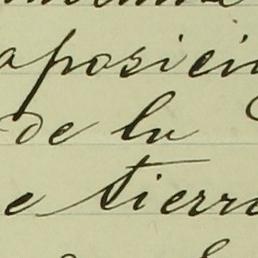 aposici
de la
e tierra